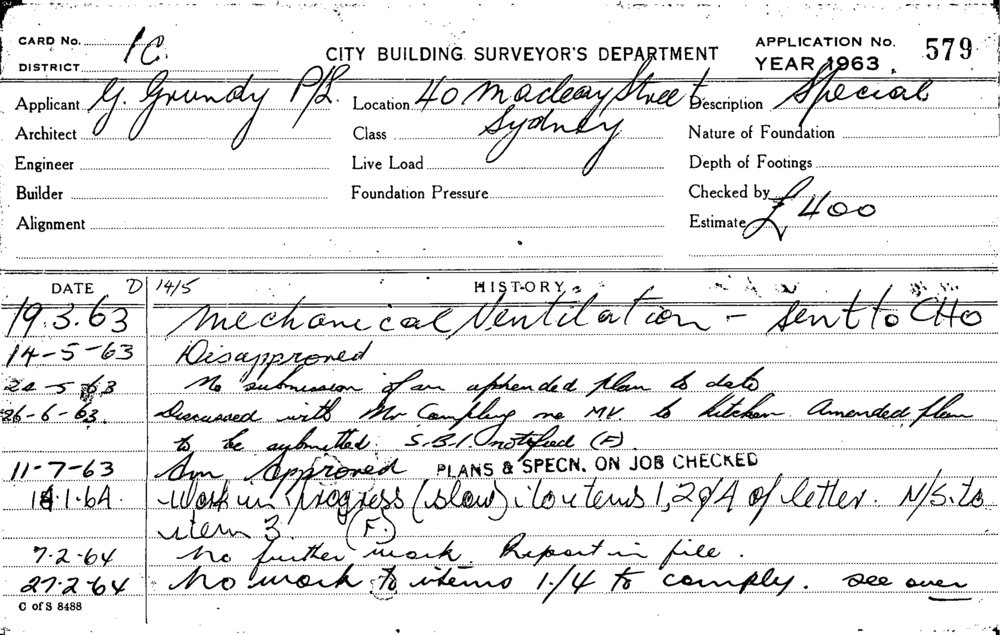 CARD No. 1C. CITY BUILDING SURVEYOR'S DEPARTMENT APPLICATION No. 579
DISTRICT YEAR 1963
Applicant G. Grundy P/L. Location 40 Macleay Street Description Special
Architect Class Sydney Nature of Foundation
Engineer Live Load Depth of Footings
Builder Foundation Pressure Checked by
Alignment Estimate £400
DATE D 14/5 HISTORY
19.3.63 Mechanical Ventilation - Sent to CHO
14-5-63 Disapproved
5 63 No submission of an amended plan to date
26-6-63. Discussed with Mr re MV. to Kitchen. Amended plan
to be submitted. S.B.I. notified (F).
11-7-63 Approved PLANS & SPECN. ON JOB CHECKED
1.64. Work in progress (slow) to items 1, 2 & 4 of letter. N/S. to
item 3. (F.)
7.2.64 No further work. Report in file.
27.2.64 No work to items 1./4 to comply. see over
C of S 8488